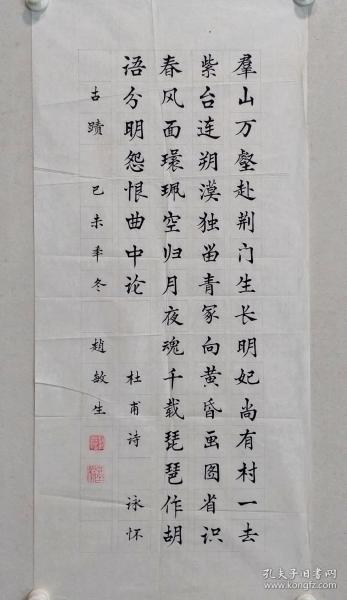 羣山万壑赴荆门生长明妃尚有村一去
紫台连朔漠独留青冢向黄昏画图省识
春风面環珮空归月夜魂千载琵琶作胡
语分明怨恨曲中论 杜甫诗 泳怀
古蹟 己未年冬 趙敏生
孔夫子旧书网
www.kongfz.com